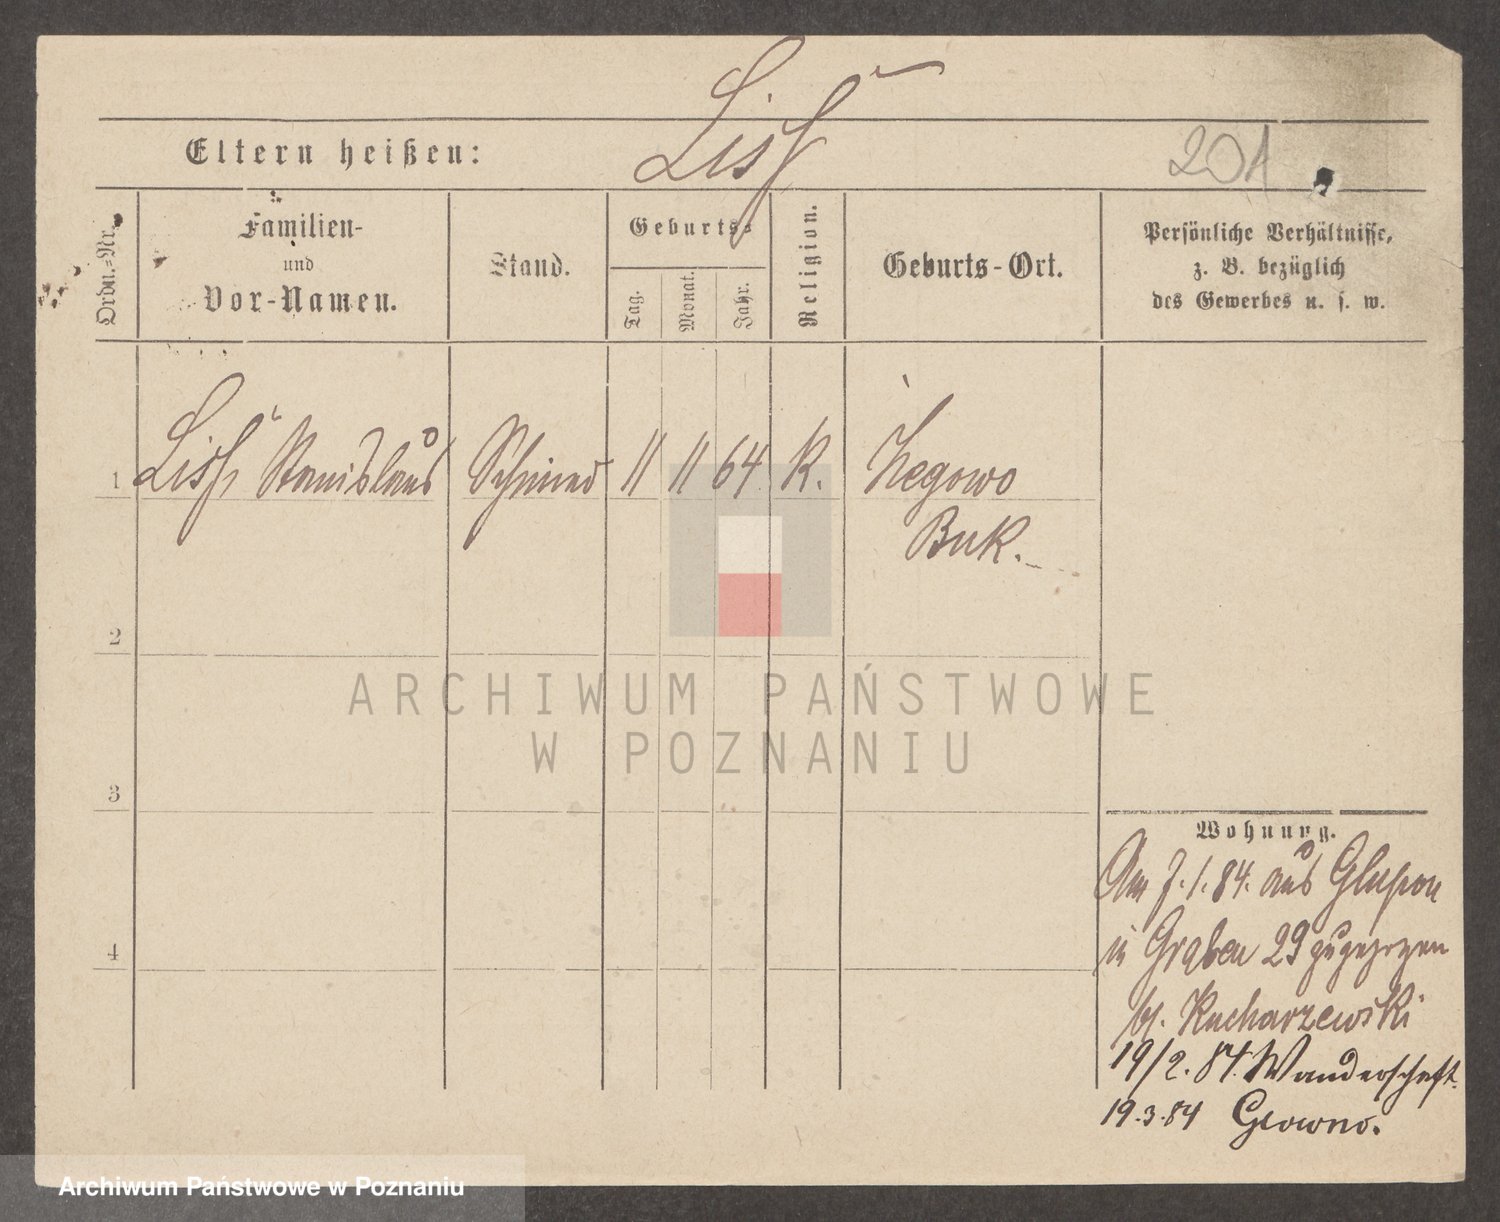 Lisź
Eltern heißen:
201
Ordn.-Nr.
Familien-
und
Vor-Namen.
Stand.
Geburts-
Tag.
Monat.
Jahr.
Religion.
Geburts-Ort.
Persönliche Verhältnisse,
z. B. bezüglich
des Gewerbes u. s. w.
1 Stanislaus Schmied 11 11 64 K. Zegowo
Buk.
2
3
4
Wohnung.
Am 7. 1. 84. aus Glupon
in Graben 29 zugezogen
bei Kucharzewski
19/2. 84. Wanderschaft.
19.3.84 Glowno.
ARCHIWUM PAŃSTWOWE
W POZNANIU
Archiwum Państwowe w Poznaniu